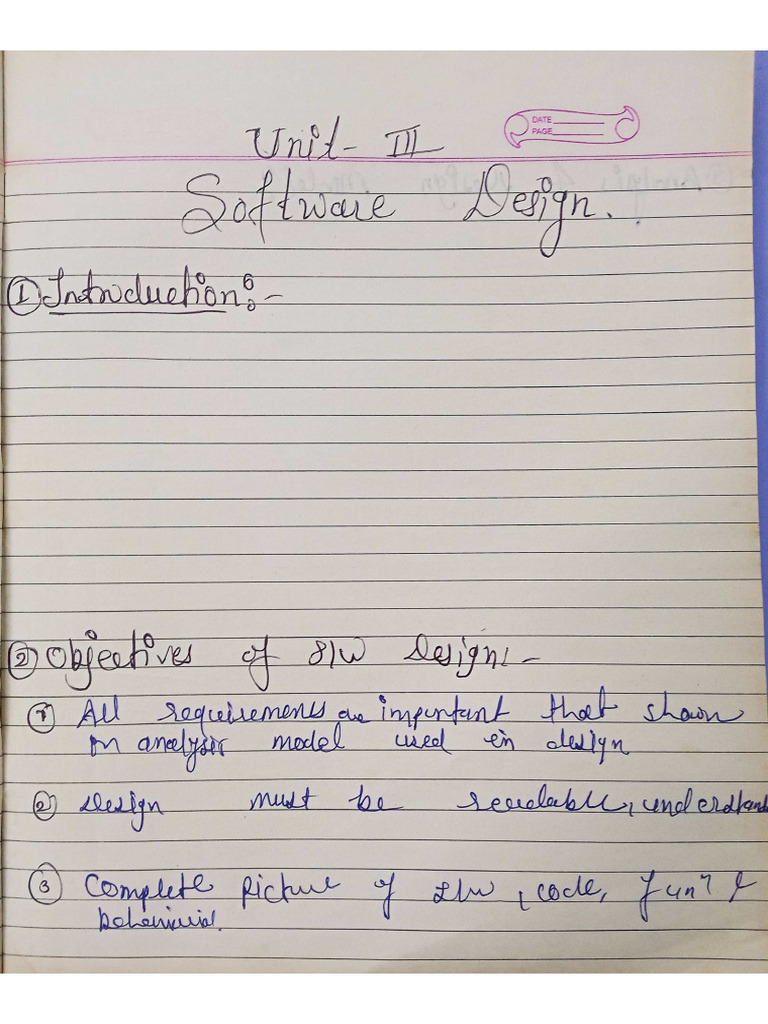 DATE
PAGE
Unit - III
Software Design.
① Introduction :-
② Objectives of S/W Design :-
① All requirements are important that shown
in analysis model used in design
② Design must be readable, understand
③ Complete picture of S/W, code, funⁿ &